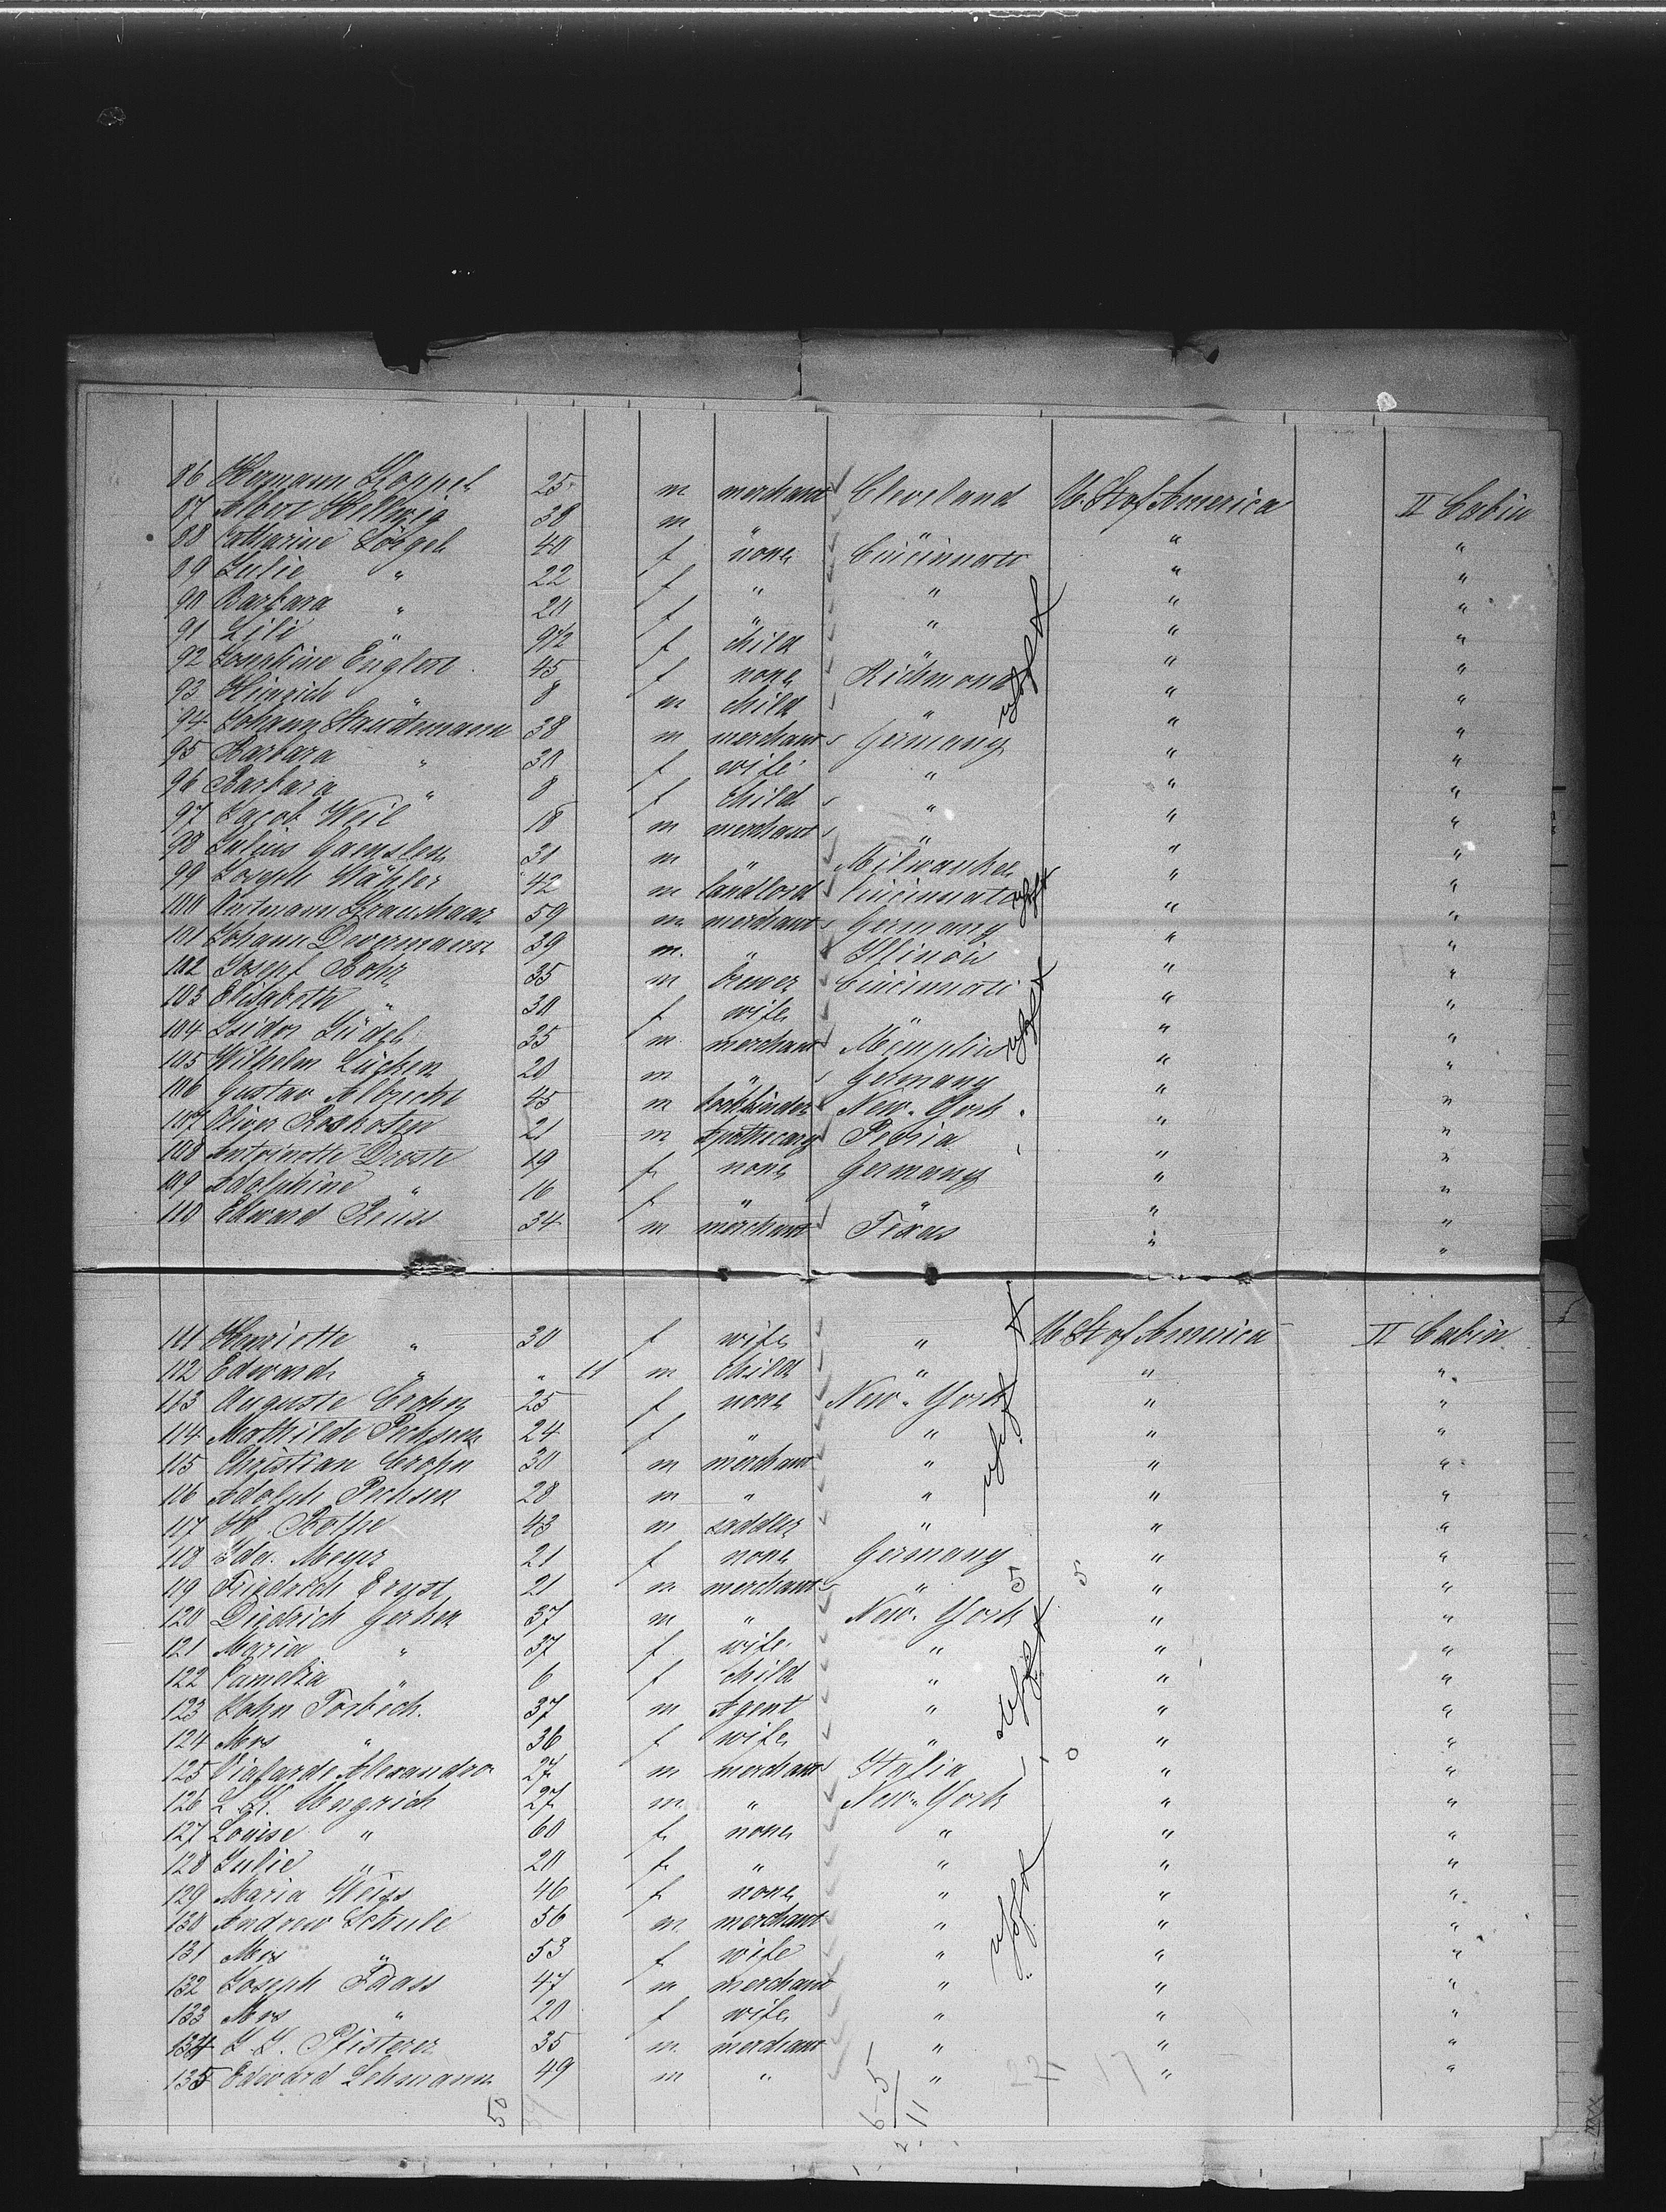 86 Hermann Koppel 25 m merchant Cleveland U. St of America II Cabin
87 Albert Hellwig 38 m " " " "
88 Catharine Vogel 40 f none Cincinnati " "
89 Julie " 22 f " " " "
90 Barbara " 20 f " " " "
91 Lili " 9 1/2 f child " " "
92 Josephine Englert 45 f none Richmond " "
93 Heinrich " 8 m child " " "
94 Johann 38 m merchant Germany " "
95 Barbara " 30 f wife " " "
96 Barbara " 8 f child " " "
97 Jacob Weil 18 m merchant " " "
98 Julius 31 m " Milwaukee " "
99 Joseph 42 m landlord Cincinnati " "
100 59 m merchant Germany " "
101 Johann 39 m. " Illinois " "
102 Josepf Rohr 35 m brewer Cincinnati " "
103 Elisabeth " 30 f wife " " "
104 Isidor 35 m merchant Memphis " "
105 Wilhelm Lücken 20 m " Germany " "
106 Gustav Albrecht 45 m New-York " "
107 Oliver Roskoten 21 m Apothecary Peoria " "
108 Antoinette Droste 19 f none Germany " "
109 Adolphine " 16 f " " " "
110 Edward Reuss 34 m merchant Texas " "
111 Henriette " 30 f wife " U. St of America II Cabin
112 Edward " " 11 m child " " "
113 Auguste Crohn 25 f none New-York " "
114 Mathilde Pechsen 24 f " " " "
115 Christian Crohn 30 m merchant " " "
116 Adolph Pechsen 28 m " " " "
117 H. Rothe 43 m saddler " " "
118 Ida Meyer 21 f none Germany " "
119 Friedrich Ernst 21 m merchant " " "
120 Diedrich Gerken 37 m " New-York " "
121 Maria " 37 f wife " " "
122 " 6 f child " " "
123 John Torbeck. 37 m Agent " " "
124 Mrs " 36 f wife " " "
125 Alexandro 27 m merchant Italia " "
126 27 m " New-York " "
127 Louise " 60 f none " " "
128 Julie " 20 f " " " "
129 Maria Weiss 46 f none " " "
130 Andrew Schule 56 m merchant " " "
131 Mrs " 53 f wife " " "
132 Joseph 47 m merchant " " "
133 Mrs " 20 f wife " " "
134 Pfisterer 35 m merchant " " "
135 Edward Lehmann 49 m " " " "
50
6-5
11
17